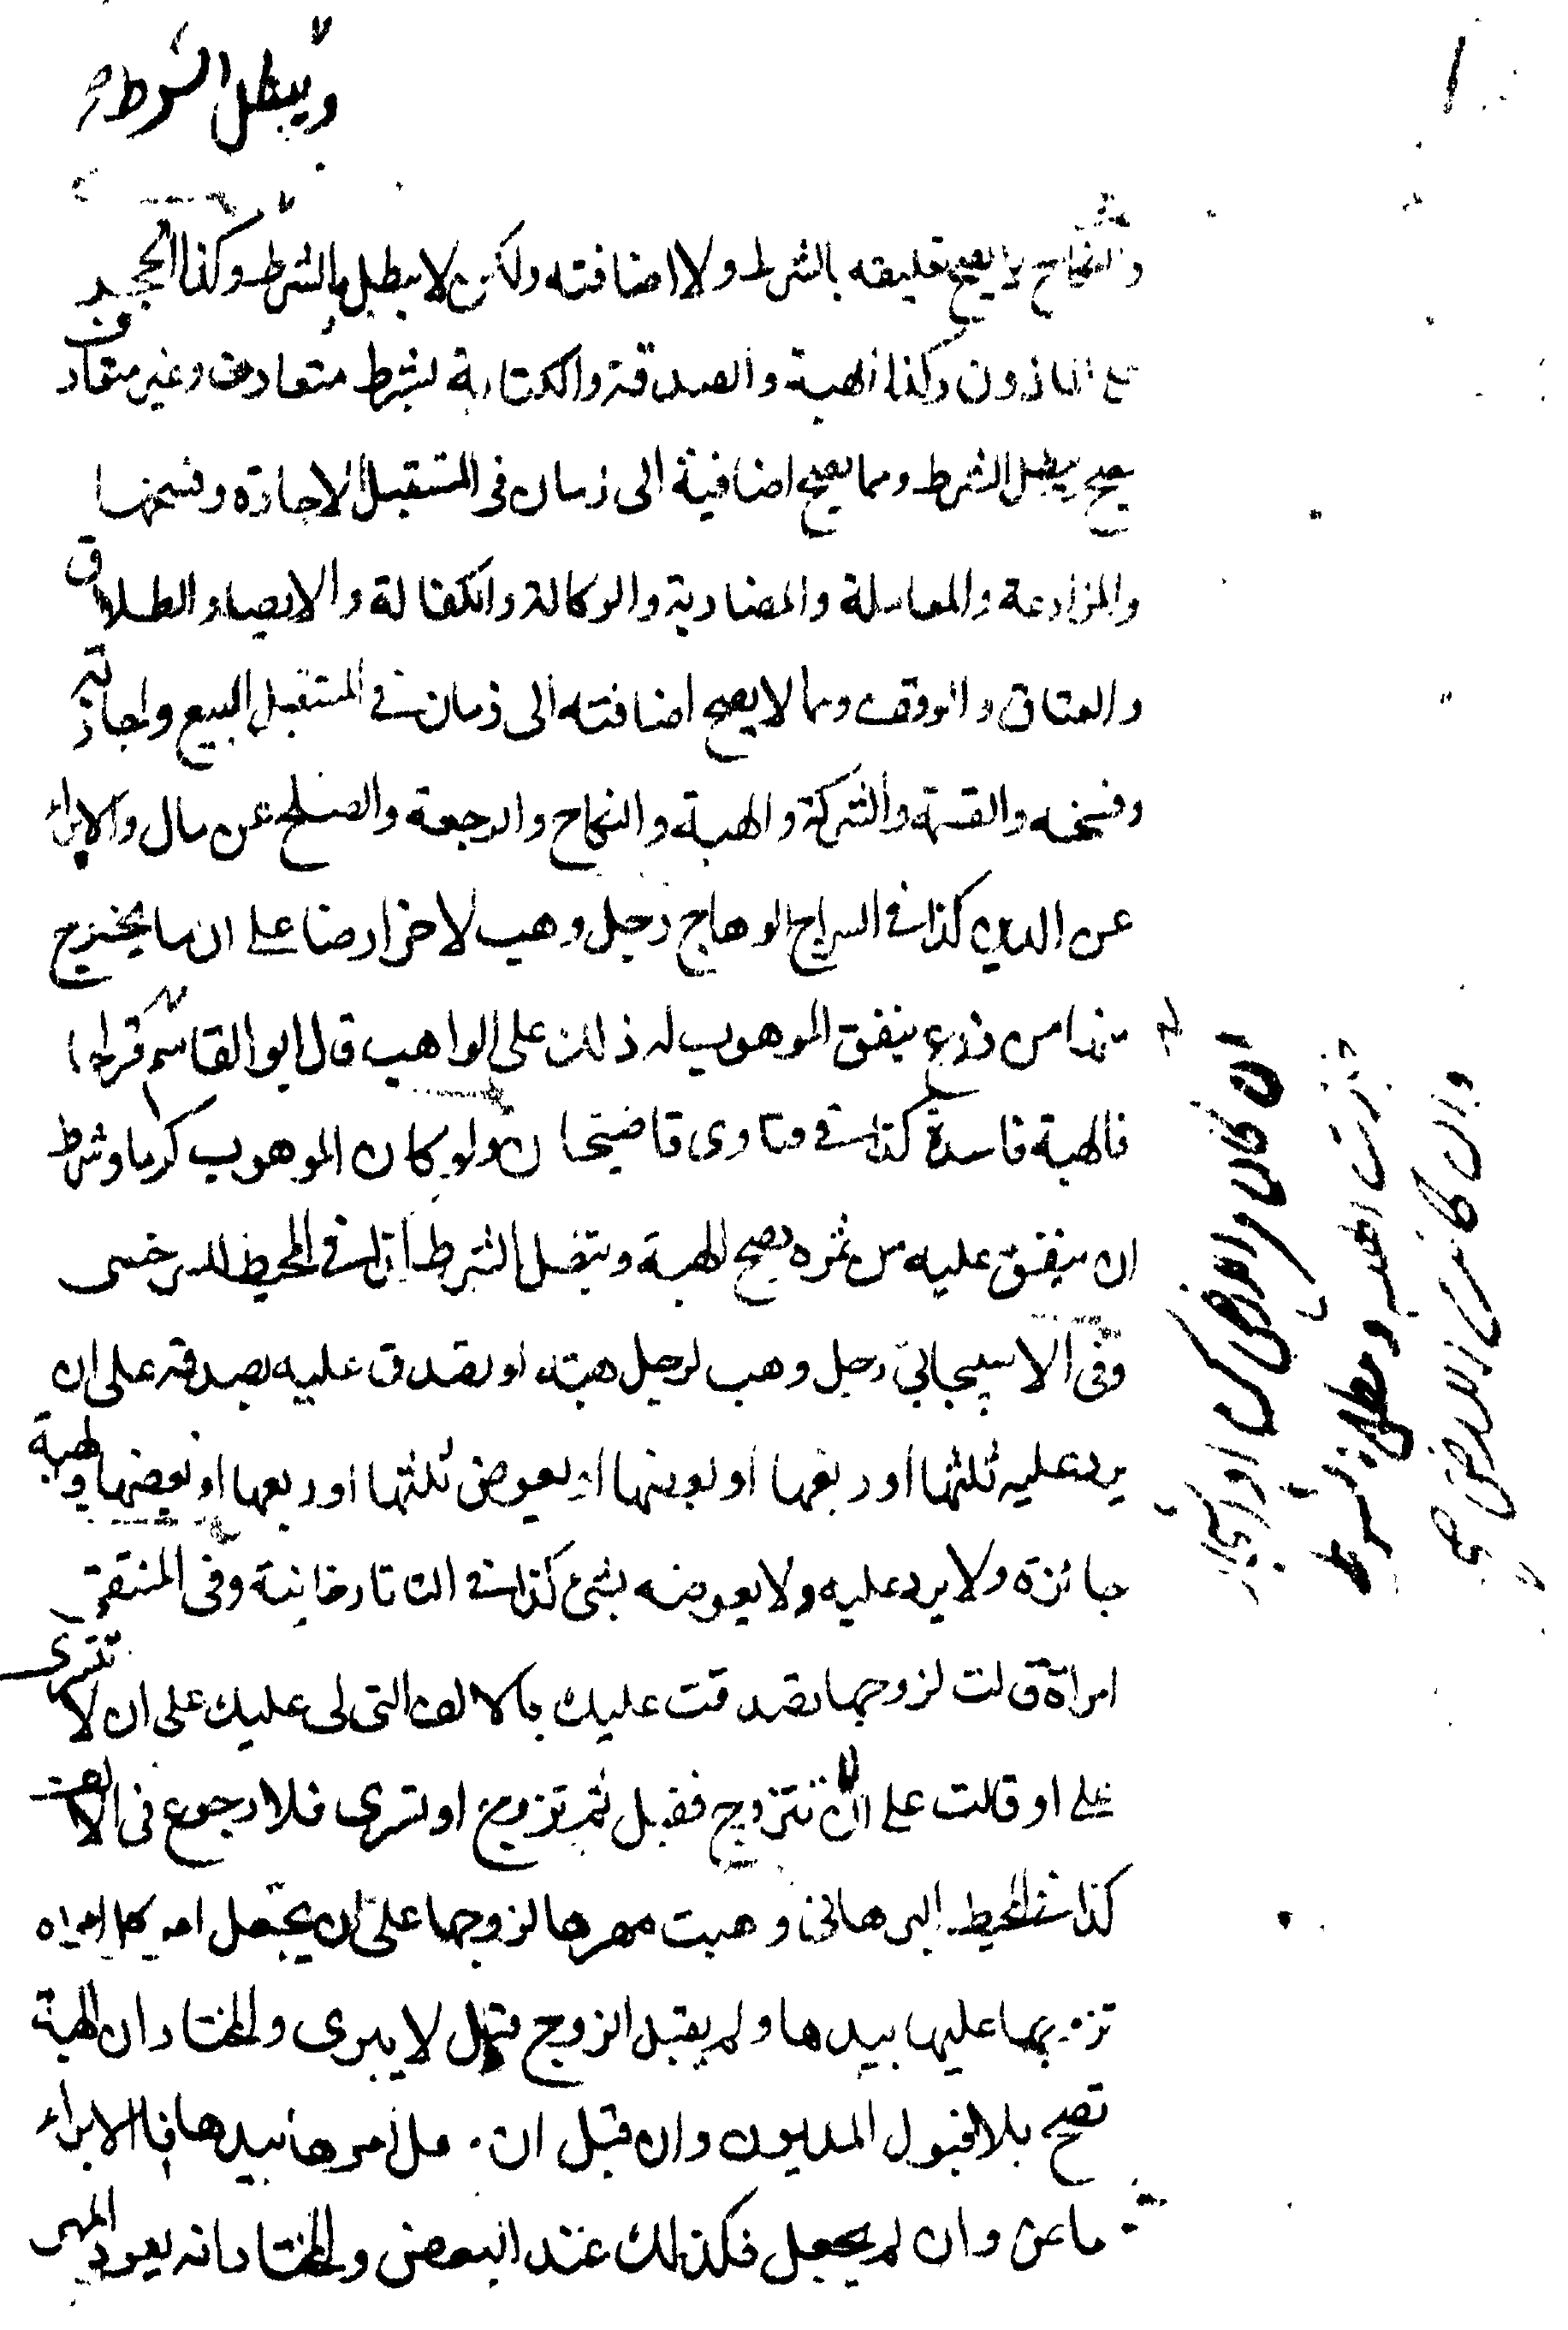 ويبطل الشرط
والنكاح لا يصح تعليقه بالشرط ولا اضافته ولكن لا يبطل بالشرط وكذا الحجر
على الماذون وكذا الهبة والصدقة والكتابة بشرط متعارف وغير متعارف
يصح ويبطل الشرط ومما يصح اضافية الى زمان فى المستقبل الاجارة وفسخها
والمزارعة والمعاملة والمضاربة والوكالة والكفالة والايصاء والطلاق
والعتاق والوقف ومما لا يصح اضافته الى زمان فى المستقبل البيع واجازته
وفسخه والقسمة والشركة والهبة والنكاح والرجعة والصلح عن مال والابراء
عن الدين كذا فى السراج الوهاج رجل وهب لاخر ارضا على ان ما يخرج
منها من زرع ينفق الموهوب له ذلك على الواهب قال ابو القاسم
فالهبة فاسدة كذا فى فتاوى قاضيخان ولو كان الموهوب كرما وشرط
ان ينفق عليه من ثمره يصح الهبة ويبطل الشرط كذا فى المحيط للسرخسى
وفى الاسبيجابى رجل وهب لرجل هبة او تصدق عليه بصدقة على ان
يرد عليه ثلثها او ربعها او بعضها او يعوض ثلثها او ربعها او بعضها فالهبة
جائزة ولا يرد عليه ولا يعوضه بشئ كذا فى التاتارخانية وفى المنتقى
امراة قالت لزوجها تصدقت عليك بالالف التى لى عليك على ان لا تتسرى
على او قالت على ان لا تتزوج فقبل ثم تزوج او تسرى فلا رجوع فى الالف
كذا فى المحيط البرهانى وهبت مهرها لزوجها على ان يجعل امر كل امراة
تزوجها عليها بيدها ولم يقبل الزوج قيل لا يبرى والمختار ان الهبة
تصح بلا قبول المديون وان قبل ان جعل امرها بيدها فالابراء
ماض وان لم يجعل فكذلك عند البعض والمختار انه يعود المهر
ان كان فى الارض كرم او اشجار
جازت الهبة وبطل الشرط
وان كانت الارض